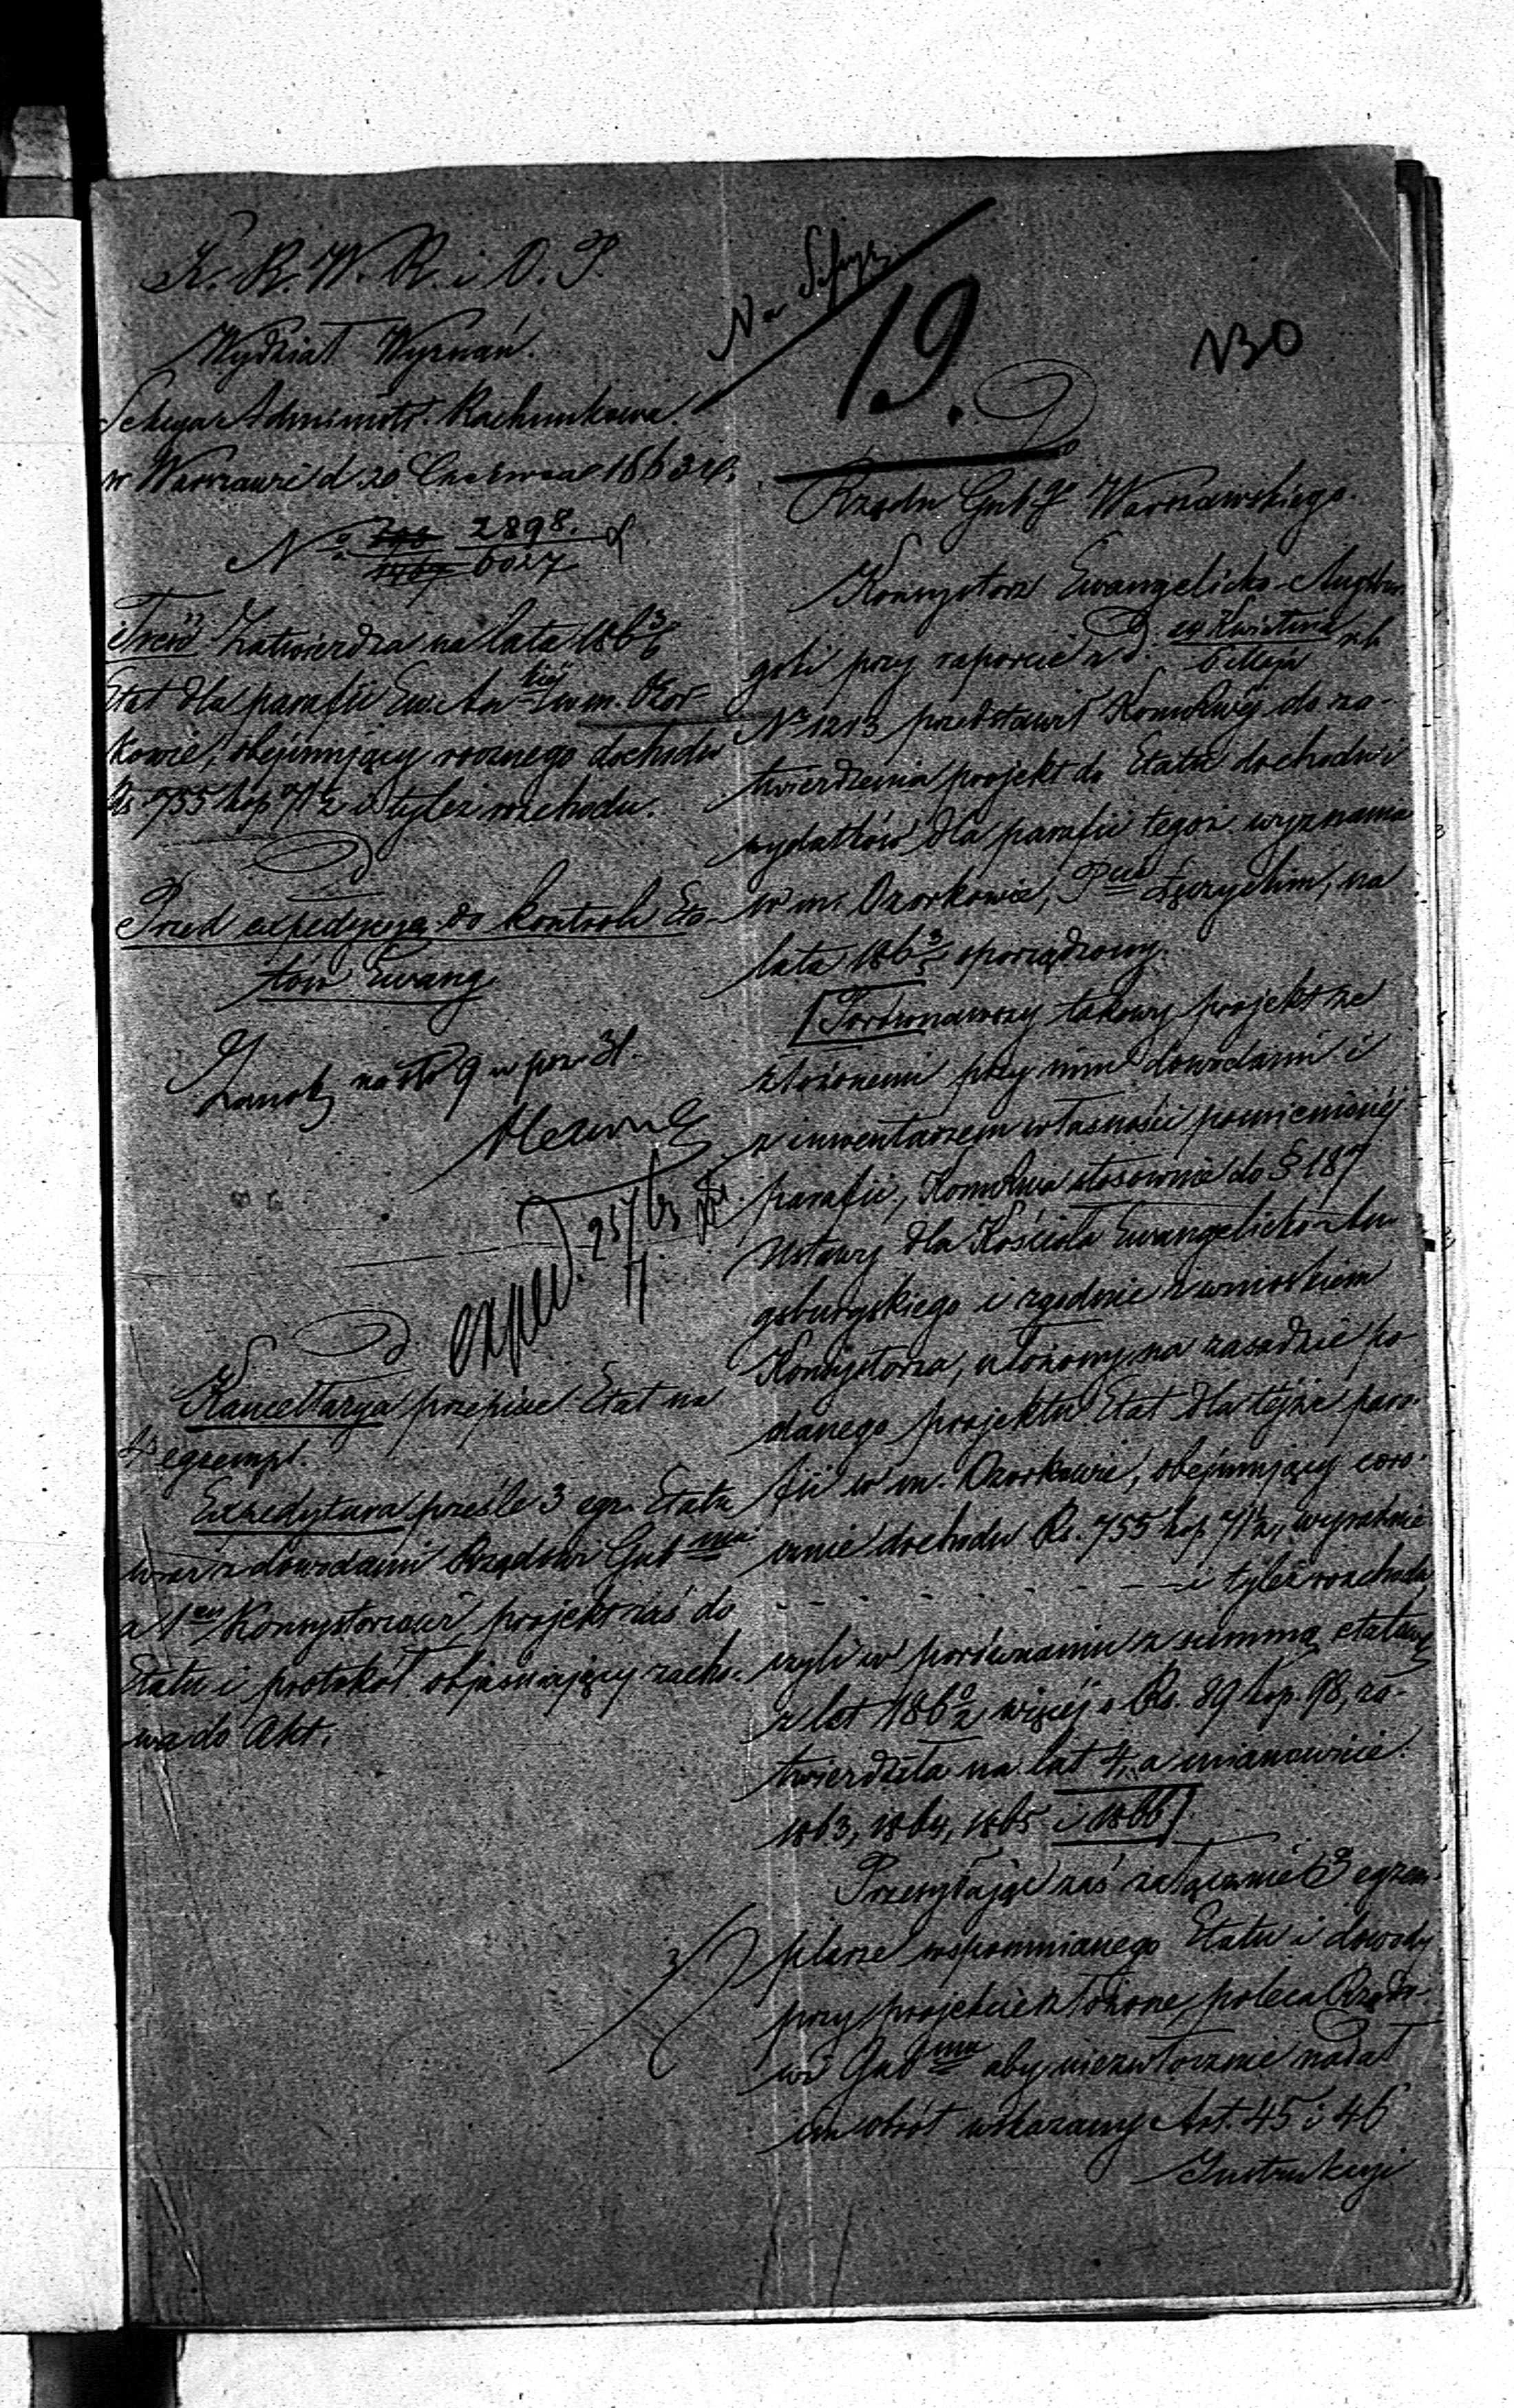 K. R. W. R. i O. P.
Wydział Wyznań.
Sekcya Administr. Rachunkowa.
w Warszawie d. 20 Czerwca 1863 r.
No 2898.
6027
Treść Zatwierdza na lata 186 3/6
Etat dla parafii Ew. Au kiéj w m. Ozor=
kowie, obejmujący rocznego dochodu
Rs 755 kop 71 1/2 i tyleż rozchodu.
Przed expedycyą do kontroli Eta-
tów Ewang.
Zanot. na str 9 w poz 31.
exped. 25/7 63
Kancellarya przepisze Etat na
4 egzempl.
Expedytura prześle 3 egz. Etatu
wraz z dowodami Rządowi Gub mu
a 1en Konsystorzowi, projekt zaś do
Etatu i protokół objaśniający zacho-
wa do Akt.
19.
N30
Rządu Gub go Warszawskiego.
Konsystorz Ewangelicko-Augsbur-
gski przy raporcie z d. 24 Kwietnia / 6 Maja r. b.
No 1213 przedstawił Kom. Rwéj do za-
twierdzenia projekt do Etatu dochodów i
wydatków dla parafii tegoż wyznania
w m. Ozorkowie, Pcie Łęczyckim, na
lata 186 3/5 sporządzony.
[Porównawszy takowy projekt ze
złożonemi przy nim dowodami i
z inwentarzem własności pomienionéj
parafii, Kom. Rwa stosownie do § 187
Ustawy dla Kościoła Ewangelicko-Au-
gsburgskiego i zgodnie z wnioskiem
Konsystorza, ułożony na zasadzie po-
danego projektu Etat dla téjże para-
fii w m. Ozorkowie, obejmujący coro-
cznie dochodu Rs. 755 kop 71 1/2, wyraźnie
- - - - - - i tyleż rozchodu,
czyli w porównaniu z summą etatową
z lat 186 0/2 więcéj o Rs. 89 kop. 98, za-
twierdziła na lat 4, a mianowicie:
1863, 1864, 1865 i 1866]
Przesyłając zaś załącznie 3 egzem-
plarze wspomnianego Etatu i dowody
przy projekcie złożone, poleca Rządo-
wi Gub mu aby niezwłocznie nadał
im obrót wskazany Art. 45 i 46
Instrukcyi